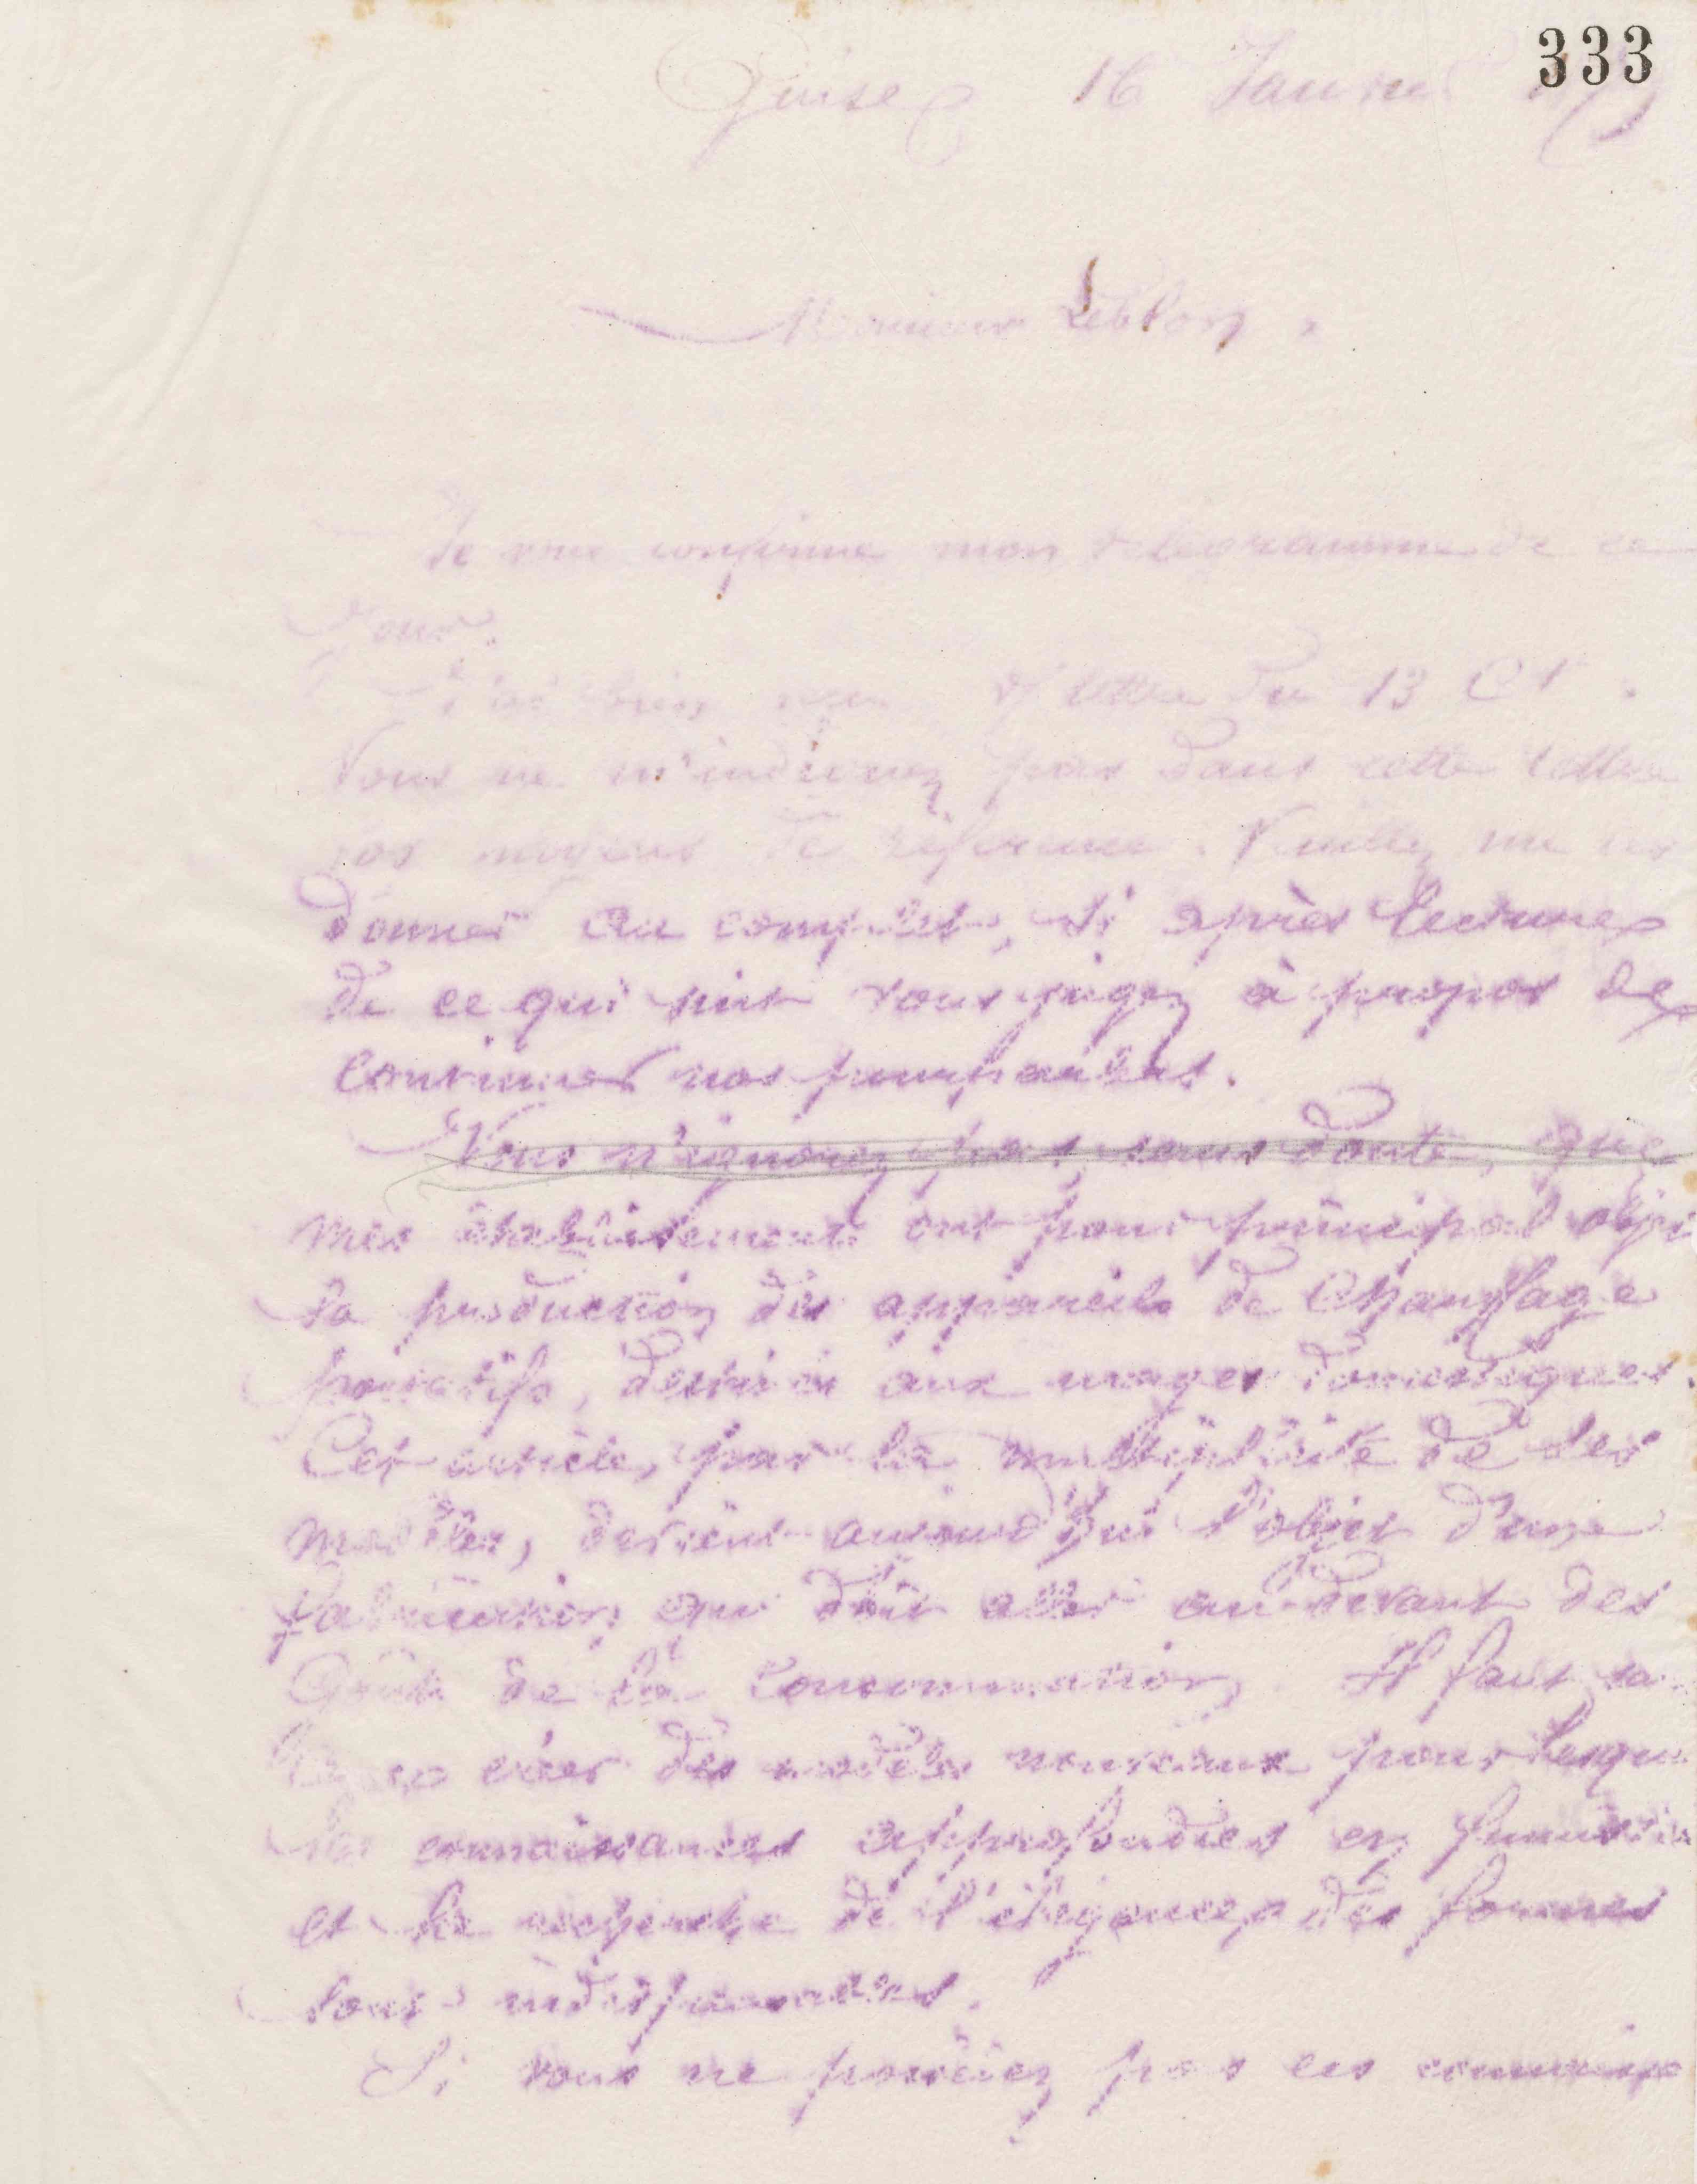 333
Guise 16 Janvier
Monsieur Leblon,
Je vous confirme mon télégramme de ce
jour.
J'ai bien reçu v/ lettre du 13 Ct.
Vous ne m'indiquez pas dans cette lettre
vos moyens de référence. Veuillez me les
donner au complet, si après lecture
de ce qui suit vous jugez à propos de
continuer nos pourparlers.
Vous n'ignorez pas, sans doute, que
mes établissements ont pour principal objet
la production des appareils de chauffage
portatifs, destinés aux usages domestiques.
Cet article, par la multiplicité de ses
modèles, devient aujourd'hui l'objet d'une
fabrication qui doit aller au-devant des
goûts de la consommation. Il faut sa
créer des modèles nouveaux pour lesquels
les connaissances approfondies en fumisterie
et la recherche de l'élégance des formes
sont indispensables.
Si vous ne possédiez pas ces